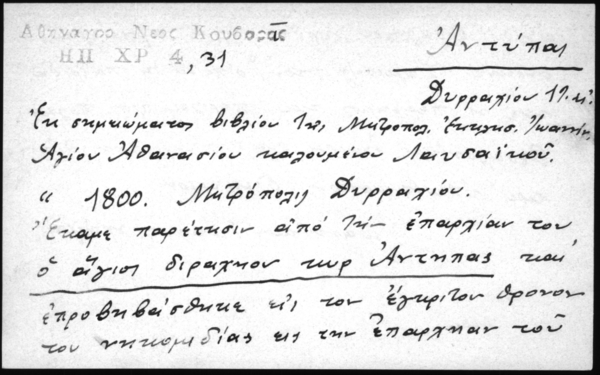 Αθηναγορ Νεος Κουβαρᾶς
ΗΠ ΧΡ 4, 31
Ἀντύπας
Δυρραχίου 19.
Ἐκ σημειώματος βιβλίου τῆς Μητροπολ. Ἐκκλησ. Ἰωαννίν.
Ἁγίου Ἀθανασίου καλουμένου Λαυσαϊκοῦ.
" 1800. Μητρόπολις Δυρραχίου.
Ἔκαμε παρέτησιν ἀπό τὴν ἐπαρχίαν του
ὁ ἅγιος διραχηου κυρ Ἀντηπας καί
ἐπροβηβάσθηκε εἰς τον ἔγκριτον θρονον
του νηκομιδίας εις την ἐπαρχηαν τοῦ